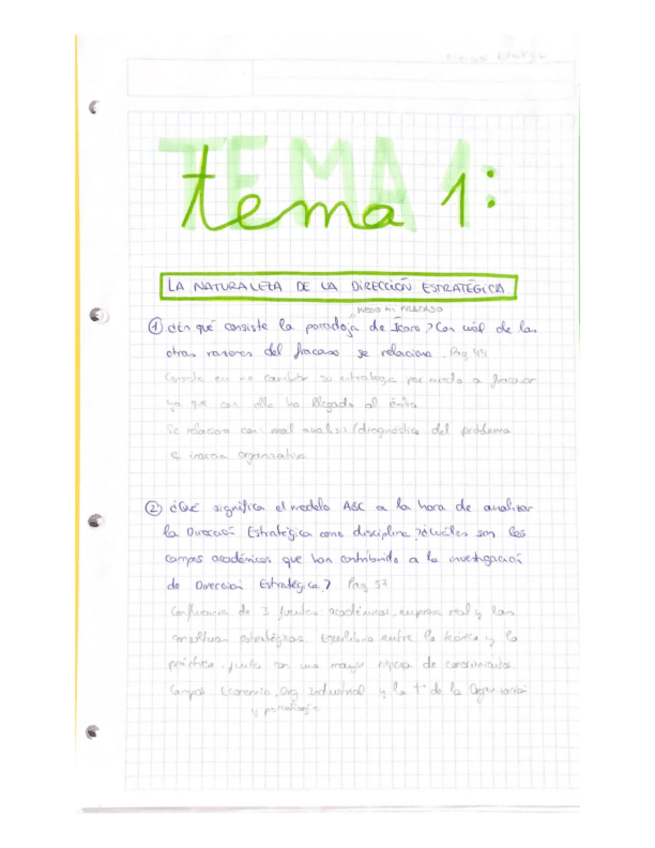 Dirección Estratégica
TEMA 1:
tema 1:
LA NATURALEZA DE LA DIRECCIÓN ESTRATÉGICA
MIEDO AL FRACASO
① ¿En qué consiste la paradoja de Ícaro? ¿Con cuál de las
otras razones del fracaso se relaciona. Pag 44
Consiste en no cambiar su estrategia por miedo a fracasar
ya que con ella ha llegado al éxito
Se relaciona con: mal analisis/diagnóstico del problema
e inercia organizativa
② ¿Qué significa el modelo ABC a la hora de analizar
la Dirección Estratégica como disciplina? ¿Cuáles son los
campos académicos que han contribuido a la investigación
de Dirección Estratégica? Pag 57
Confluencia de 3 fuentes académicas, empresa real y las
consultoras estratégicas. Equilibrio entre la teórica y la
práctica, junto con una mayor riqueza de conocimientos.
Campos Economía, Org Industrial y la tª de la Organización
y psicología